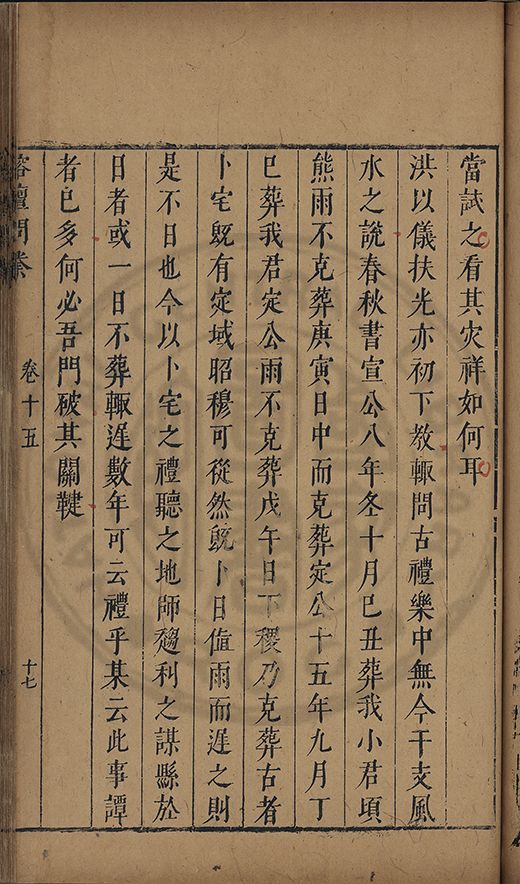 當試之看其灾祥如何耳
洪以儀扶光亦初下教輙問古禮樂中無今干支風
水之說春秋書宣公八年冬十月巳丑葬我小君頃
熊雨不克葬庚寅日中而克葬定公十五年九月丁
巳葬我君定公雨不克葬戊午日下稷乃克葬古者
卜宅旣有定域昭穆可從然旣卜日值雨而遅之則
是不日也今以卜宅之禮聽之地師趨利之謀縣於
日者或一日不葬輙遅數年可云禮乎某云此事譚
者巳多何必吾門破其關鞬
榕壇問業
卷十五
十七